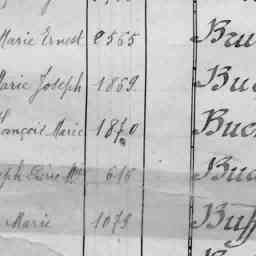 Marie Ernest 2565 Bru
Marie Joseph 1869 Bu
François Marie 1840 Buc
Joseph Pierre Mie 616 Bu
Marie 1079 Buff